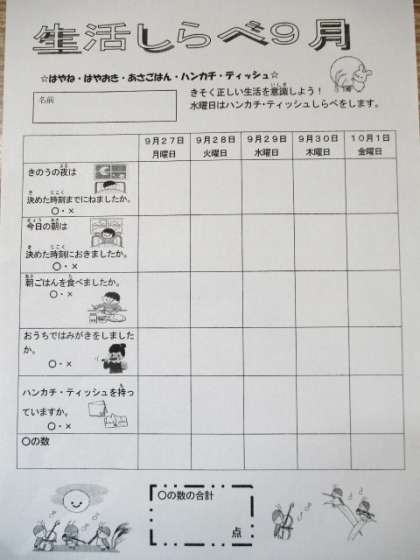 生活しらべ9月
☆はやね・はやおき・あさごはん・ハンカチ・ティッシュ☆
名前
きそく正しい生活を意識しよう！
水曜日はハンカチ・ティッシュしらべをします。
9月27日 9月28日 9月29日 9月30日 10月1日
月曜日 火曜日 水曜日 木曜日 金曜日
きのうの夜は
決めた時刻までにねましたか。
○・×
今日の朝は
決めた時刻におきましたか。
○・×
朝ごはんを食べましたか。
○・×
おうちではみがきをしました
か。
○・×
ハンカチ・ティッシュを持っ
ていますか。
○・×
○の数
○の数の合計
点